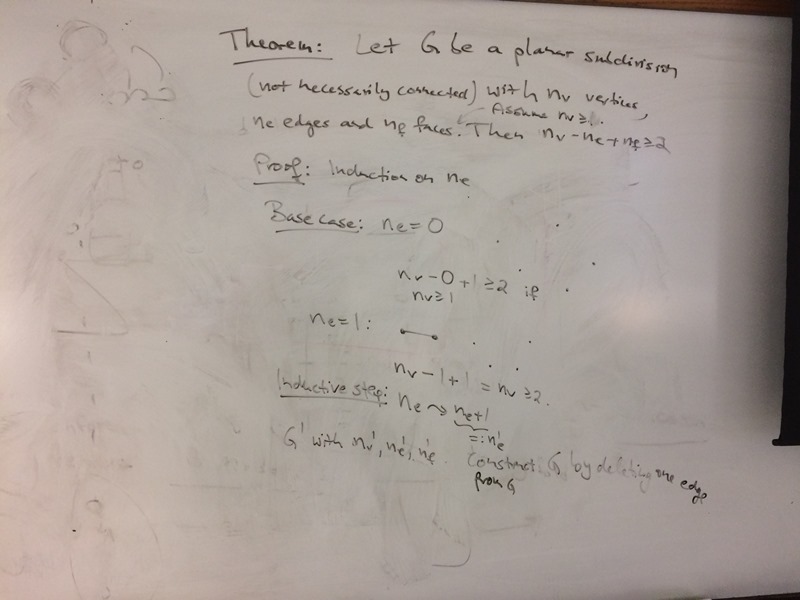 Theorem: Let G be a planar subdivision
(not necessarily connected) with nv vertices,
Assume nv ≥ 1.
ne edges and nf faces. Then nv - ne + nf ≥ 2
Proof: Induction on ne
Base case: ne = 0
nv - 0 + 1 ≥ 2 if
nv ≥ 1
ne = 1:
nv - 1 + 1 = nv ≥ 2.
Inductive step: ne ⇝ ne+1
=: n'e
G' with n'v, n'e, n'f.
Construct G by deleting one edge
from G